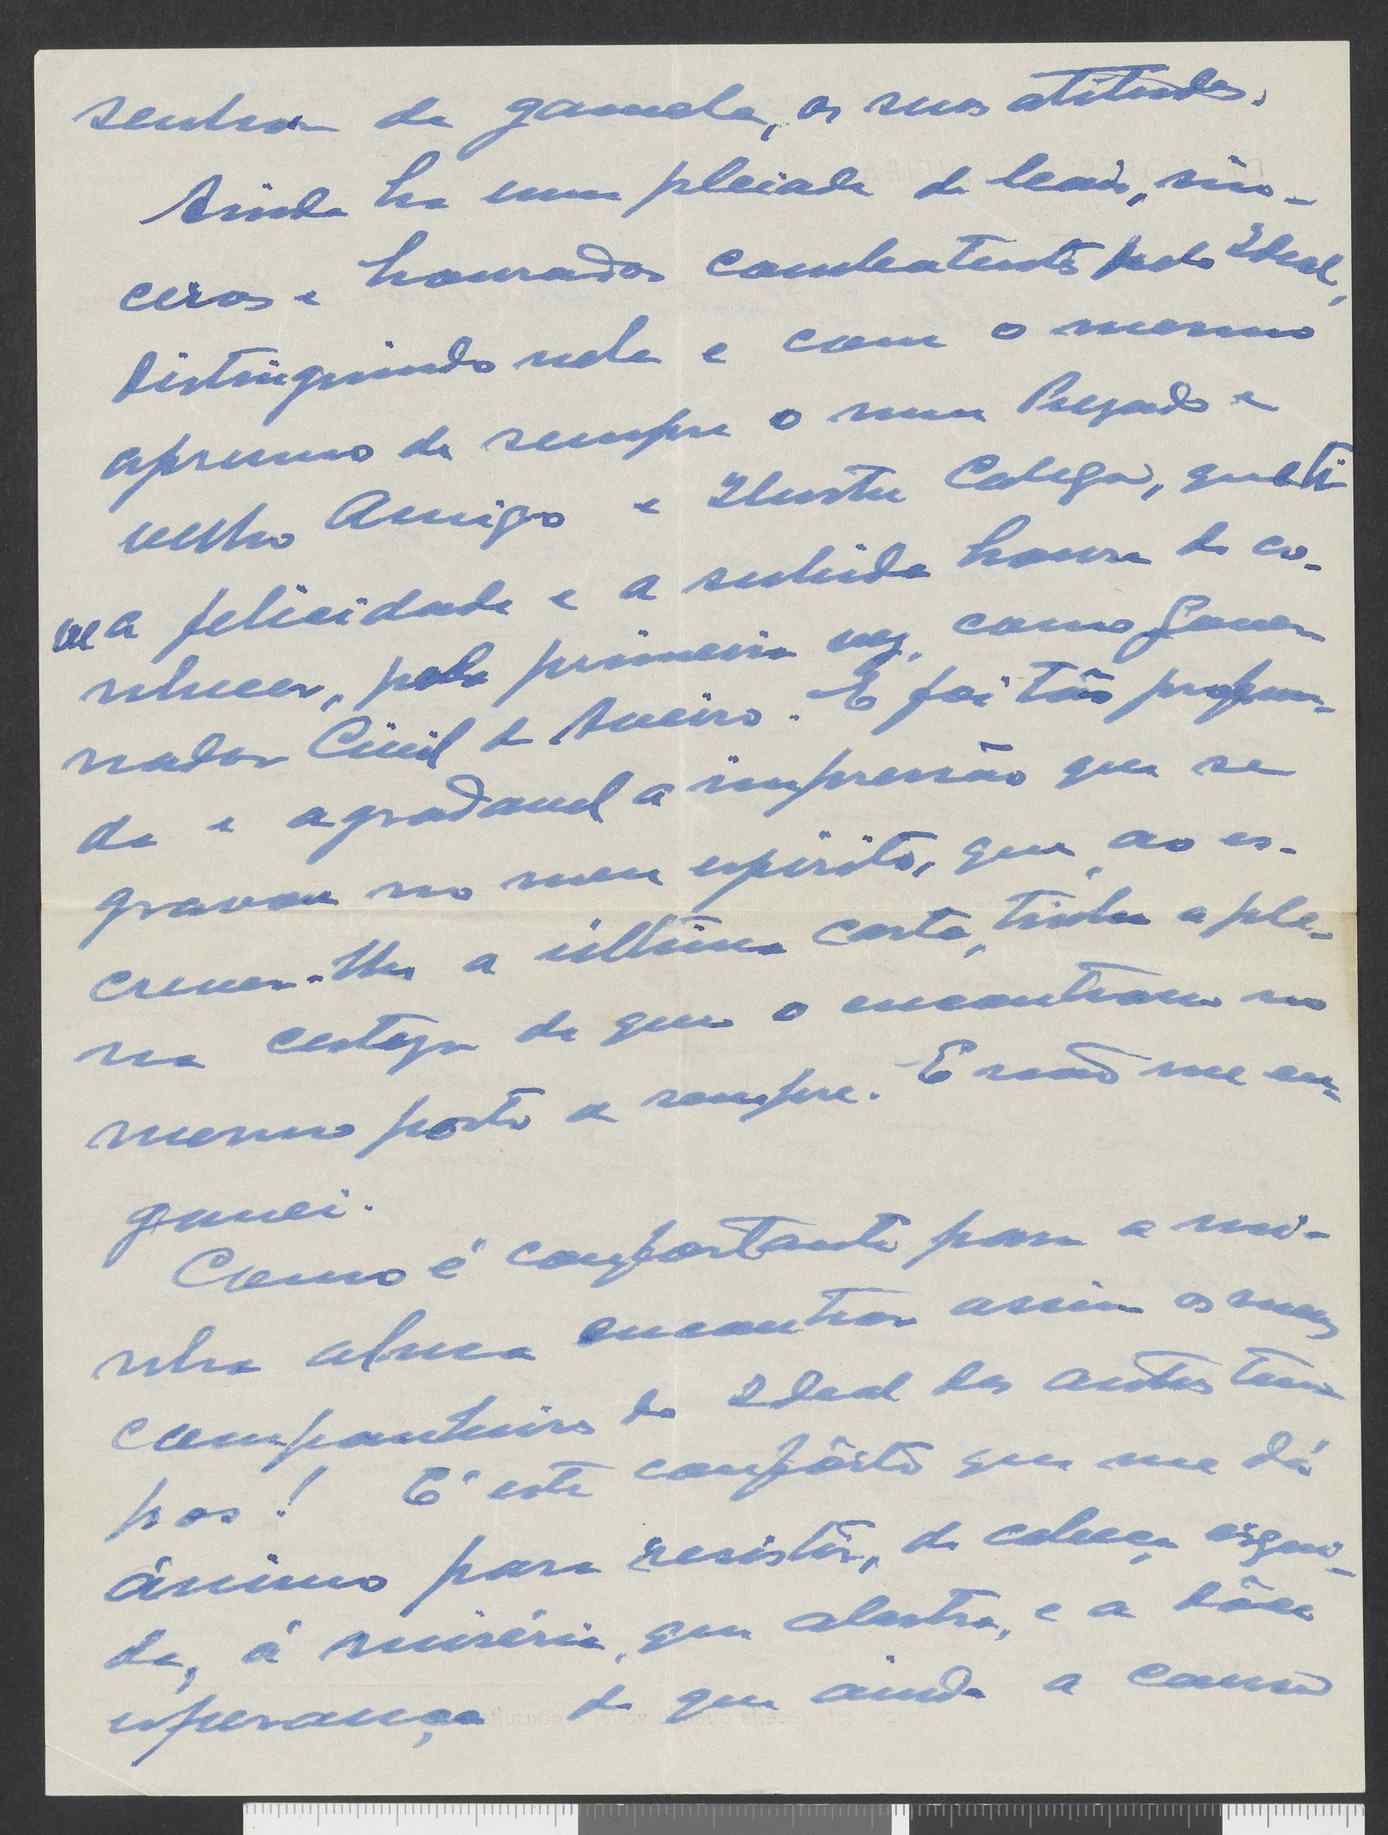 senhor da gamela, as suas atitudes.
Ainda ha uma pleiade de leais, sin-
ceros e honrados combatentes pelo Ideal,
distinguindo nela e com o mesmo
aprumo de sempre o meu Prezado e
velho Amigo e Ilustre Colega, que ti
ve a felicidade e a subida honra de co-
nhecer, pela primeira vez, como Gover-
nador Civil de Aveiro. E foi tão profun-
da e agradavel a impressão que se
gravou no meu espirito, que, ao es-
crever-lhe a última carta, tinha a ple-
na certeza de que o encontrava no
mesmo posto de sempre. E não me en-
ganei.
Como é confortante para a mi-
nha alma encontrar assim os meus
companheiros do Ideal dos antos tem
pos! É este confôrto que me dá
ânimo para resistir, de cabeça ergui-
da, á miséria, que alastra, e a dôce
esperança de que ainda a